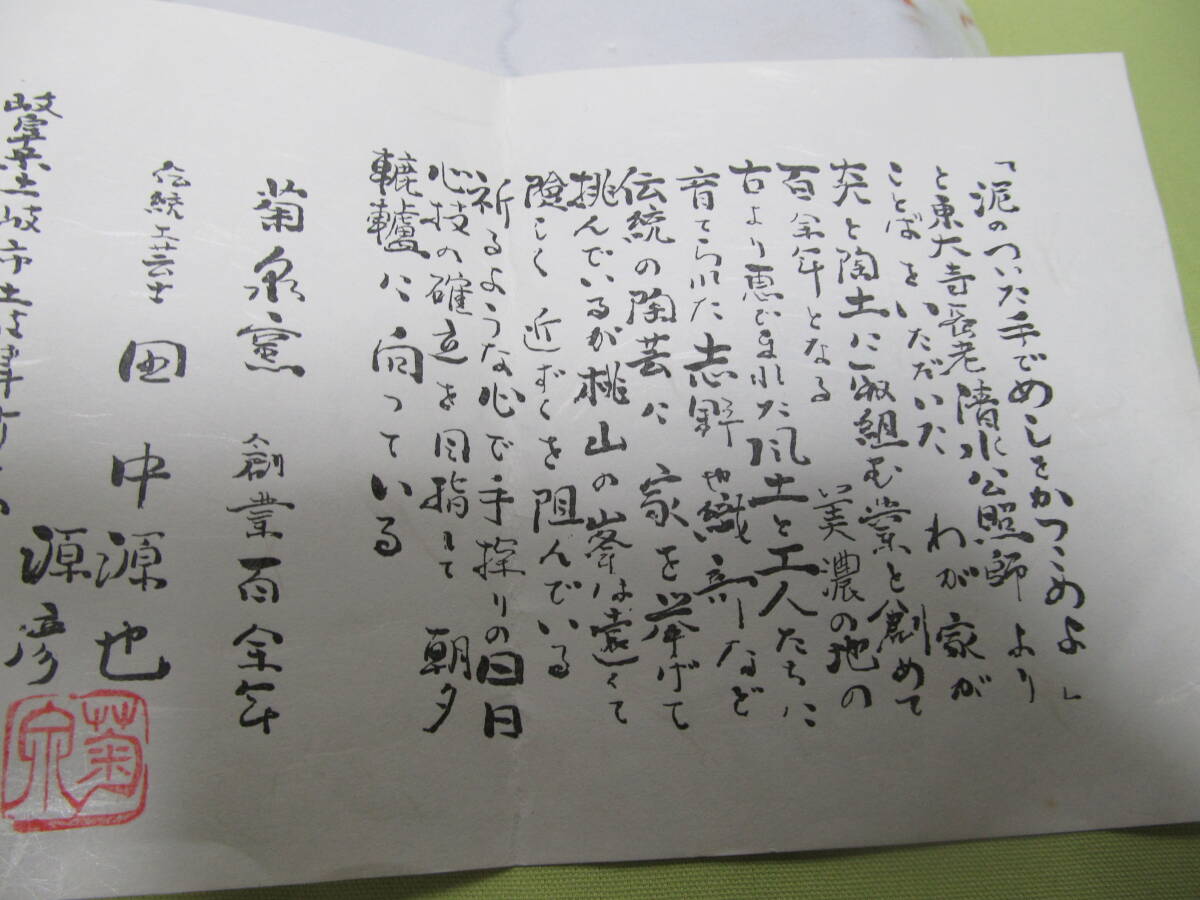 「泥のついた手でめしをかっこめよ」
と東大寺長老清水公照師より
ことばをいただいた わが家が
炎と陶土に取組む業を創めて
百余年となる 美濃の地の
古より恵まれた風土と工人たちに
育てられた志野や織部など
伝統の陶芸に 家を挙げて
挑んでいるが桃山の峯は遠くて
険しく 近ずくを阻んでいる
祈るような心で手探りの日日
心技の確立を目指して 朝夕
轆轤に向っている
菊泉窯 創業百余年
伝統工芸士 田中源也
源彦
岐阜県土岐市土岐津町
菊泉